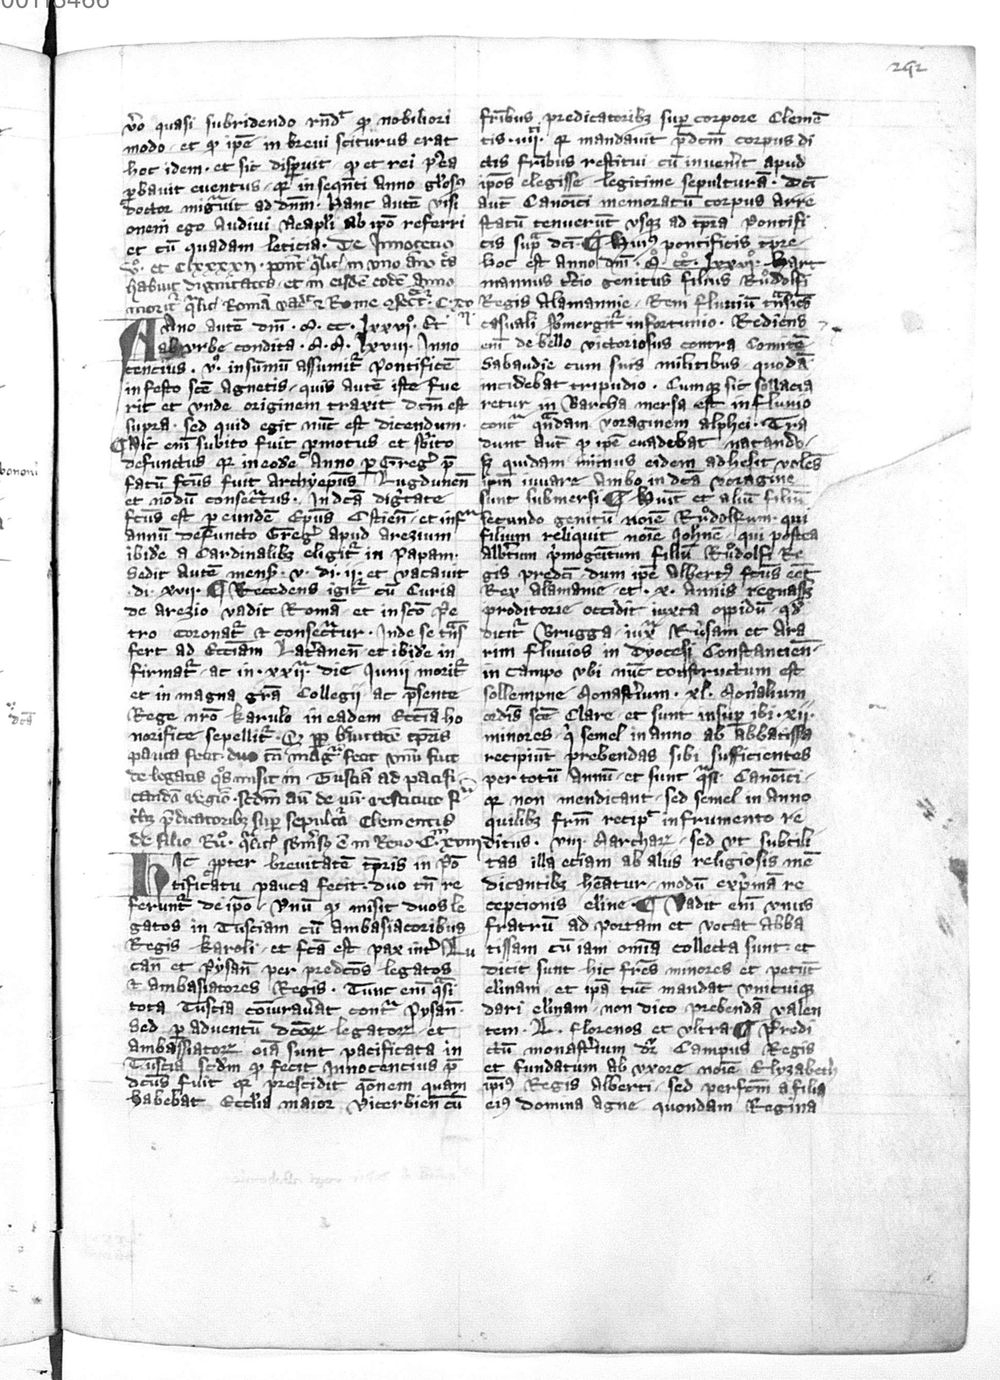 00113466
292
v̄o quasi subridendo rn̄dꝫ ꝙ nobiliori
modo et ꝙ ip̄e in brevi sciturus erat
hoc idem et sic disparuit ꝙ et rei p̄ea
ꝓbavit eventus qꝛ in seqn̄ti Anno gl̄osꝰ
doctor migᵃuit ad dn̄m. Hanc autē visi
onem ego Audivi Neapl̄i ab ip̄o referri
et cū quadam leticia. De Innocencio
vͦ. et Clxxxxij.
habuit dignitates et in eisdē eodē Anno
Anno autē dn̄i. M. cc. lxxvjͦ. Et
ab vrbe condita. M. M. lxxviij. Inno
tencius. vͦ. in sūmū assumitᷣ Pontificē
in festo scē Agnetis quis autē iste fue
rit et vnde originem traxit dc̄m est
supra. sed quid egit nūc est dicendum.
¶ Hic em̄ subito fuit ꝑmotus et sb̄ito
defunctus qꝛ in eodē Anno ꝑ Gregͬ p̄
fatū fc̄us fuit Archyep̄us Lugdunen̄
et nōdū consecᵃtus. In dc̄a dig̅tate
fc̄us est ꝑ eundē Ep̄us Ostien̄ et infᵃ
annū defuncto Gregͬ apud Arezium
ibidē a Cardinalibꝫ eligitᷣ in Papam.
Sedit autē mensꝭ. v. di. ij. et vacavit
di. xvij. ¶ Recedens igitᷣ cū Curia
de Arezio vadit Romā et in scō Pe
tro coronatᷣ et consecᵃtur. Inde se tn̄s
fert ad Ecc̄iam Lat̄anen̄ et ibidē in
firmatᷣ ac in. xxij. die Junij moritᷣ
et in magna gr̄a Collegii ac p̄sente
Rege nr̄o Karulo in eadem Ecc̄ia ho
norifice sepellitᷣ. Qꝫ ꝓpᷣ b̄uitatē tp̄ris
pauca fecit. duo tn̄ magᵃ fecit vnū fuit
de legatis qͦs misit in Tusciā ad pacifi
tribꝫ p̄dicatoribꝫ suꝑ sepultᵃ Clementis
Hic ꝓpter brevitatē tp̄ris in Pō
tificatu pauca fecit. duo tn̄ re
ferunt᷑ de ip̄o. Vnū ꝙ misit duos le
gatos in Tusciam cū ambasiatoribus
Regis Karoli et fc̄a est pax int̄ Lu
can̄ et Pysan̄ per predc̄os legatos
et ambasiatores Regis. Tunc em̄ qᵃsi
tota Tuscia coīuraūat contᵃ Pysan̄
Sed ꝑ adventū dc̄oꝝ legatoꝝ et
Ambassiatoꝝ oīa sunt pacificata in
Tuscia Scd̄m ꝙ fecit Innocencius p̄
dc̄us fuit qꝛ prescidit qōnem quam
habebat Ecclia maior Viterbien̄ cū
fribus predicatoribꝫ suꝑ corpore Clemē
tis. iiij. qꝛ mandavit p̄dc̄m corpus di
ctis fribus restitui cū inven̄it apud
ip̄os elegisse legitime sepulturā. Dc̄i
aut̄ Canoīci memoratū corpus Arre
statū tenuerūt vsqꝫ ad tp̄ra Pontifi
cis supᵃ dc̄i. ¶ Huiꝰ pontificis tp̄re
hoc est anno dn̄i. M. cc. lxxvjͦ. Hart
mannus t̄cio genitus filius Ruͦdolfi
Regis Alamannie Reni fluviū tn̄siēs
casuali sb̄mergitᷣ infortunio. Rediens
em̄ de bello victoriosus contra Comitē
Sabaudie cum suis militibus quodā
incidebat tripudio. Cumqꝫ sic sollacia
retur in Barcha mersa est in fluvio
contᵃ qᵃndam voraginem alphei. Tra
dunt aut̄ ꝙ ip̄e evadebat natando
sꝫ quidam minus eidem adhesit volēs
ip̄m iuvare Ambo in dc̄a voragine
sunt submersi. ¶ Hūc et aliū filiū
secundo genitū noīe Ruͦdolfum. qui
filium reliquit noīe Joh̄nē qui postea
Alb̄tum pͥmogēitum filiū Ruͦdolfi Re
gis predc̄i dum ip̄e Albertꝰ fc̄us eēt
Rex Alamanie et. x. Annis regnassꝫ
proditorie occidit iuxta oppidū qd̄
dicitᷣ Brugga iuxᵃ Rūsam et Ara
rim fluvios in Dyocesi Constancien̄
in campo vbi nūc constructum est
sollempne Monast̄ium. xl. Mon̄alium
ordīs scē Clare et sunt insuꝑ ibi. xij.
minores qͥ semel in anno ab abbatissa
recipiūt prebendas sibi sufficientes
per totū Annū et sunt qᵃsi Canoīci
qꝛ non mendicant sed semel in anno
quilibꝫ frm̄ recipᷣ in frumento re
ditus. viij. Marcharꝝ sed vt subtili
tas illa eciam ab aliis religiosis mē
dicantibꝫ h̄eatur modū exp̄mā re
cepcionis elīne. ¶ Vadit em̄ vnus
fratrū ad Portam et vocat Abba
tissam cū iam om̄ia collecta sunt et
dicit sunt hic fr̄es minores et petūt
elīnam et ip̄a tūc mandat vnicuiqꝫ
dari elīnam non dico prebendā valen
tem. L. florenos et vltra ¶ Predi
ctū monast̄ium dr̄ Campus Regis
et fundatum ab vxore noīe Elyzabeth
ip̄iꝰ Regis Alberti sed perfc̄m a filia
eiꝰ domina Agne quondam Regina